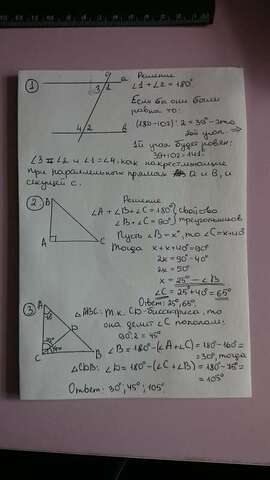 ① Решение
c
a
3 1
∠1 + ∠2 = 180°
Если бы они были
равны то:
(180-102) : 2 = 39° - это
2ой угол ⇒
4 2 в
1й угол будет равен:
39+102 = 141°
∠3 = ∠2 и ∠1 = ∠4. как накрестлежащие
при параллельных прямых а и в, и
секущей с.
② Решение
B
∠A + ∠B + ∠C = 180° (свойство
∠B + ∠C = 90°) треугольников
Пусть ∠B = x°, то ∠C = x+40°
A C
Тогда x + x + 40 = 90°
2x = 90° - 40°
2x = 50°
x = 25° - ∠B
∠C = 25° + 40° = 65°
Ответ: 25°, 65°.
③ A
△ABC: т.к. CD - биссектриса, то
она делит ∠C пополам:
90 : 2 = 45°
D
∠B = 180° - (∠A + ∠C) = 180° - 160° =
= 30°, тогда
C B
△CDB: ∠D = 180° - (∠C + ∠B) = 180° - 75° =
= 105°
Ответ: 30°, 45°, 105°